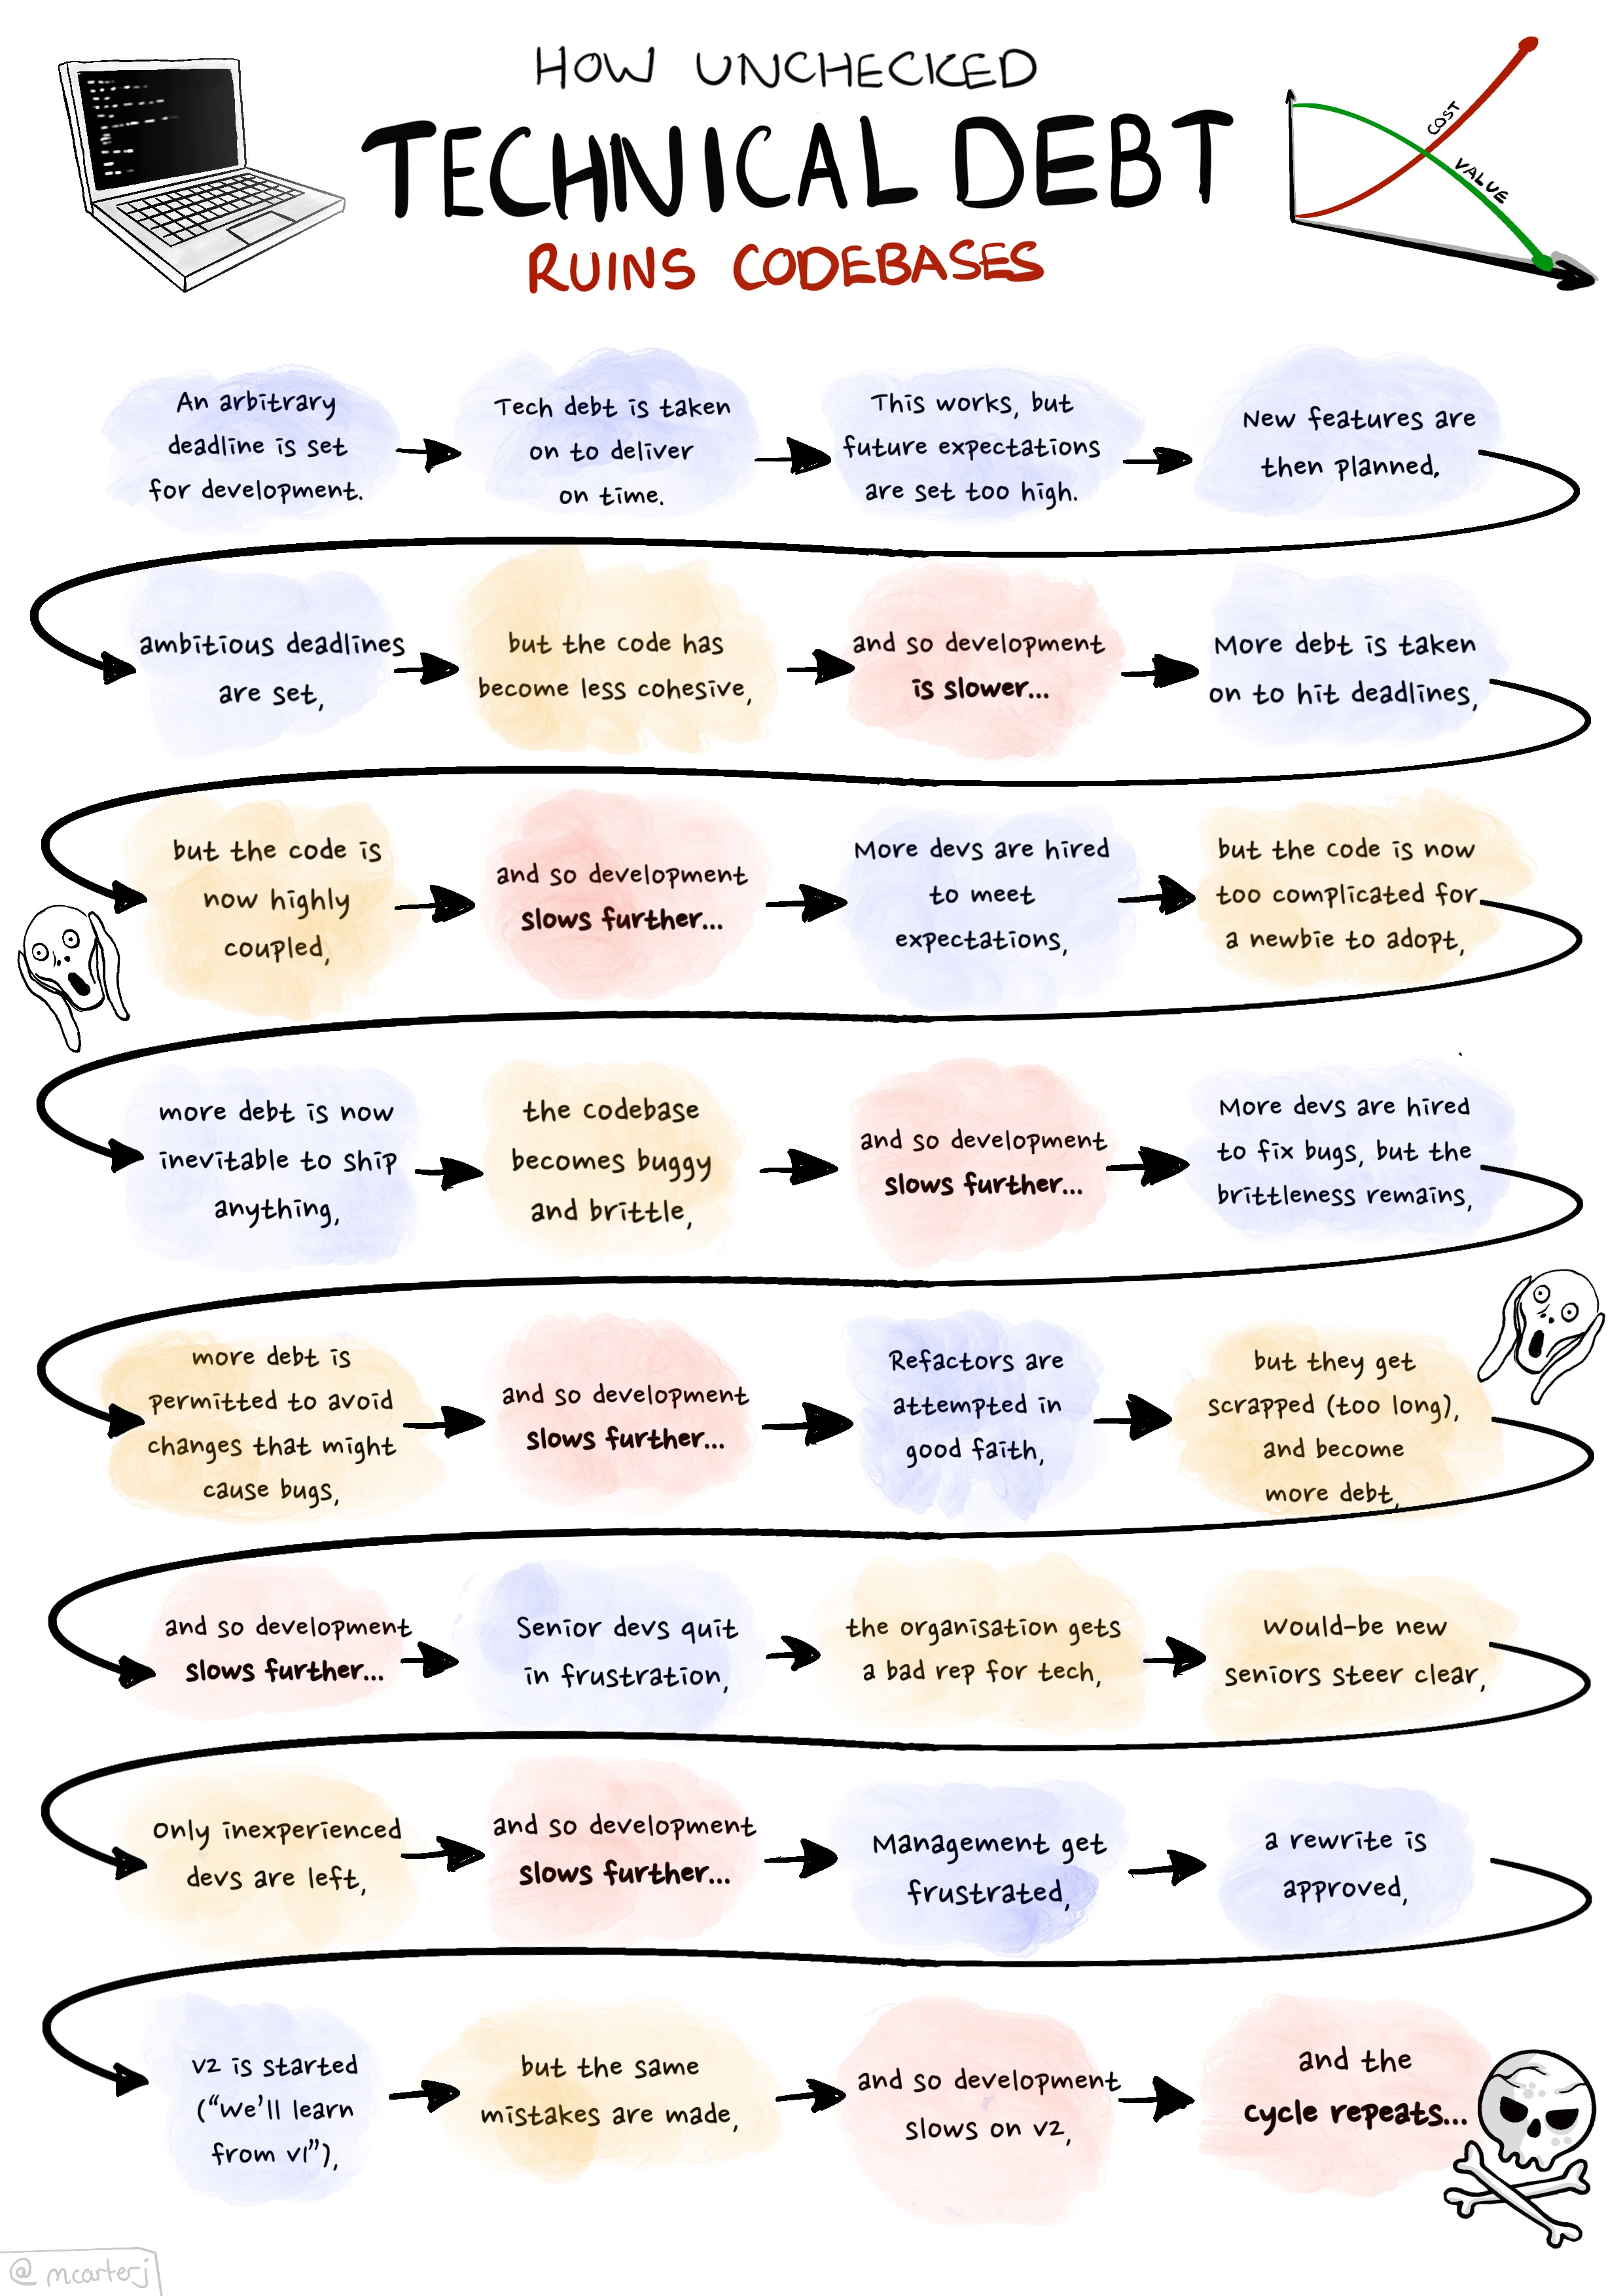 HOW UNCHECKED
TECHNICAL DEBT
RUINS CODEBASES
COST
VALUE
An arbitrary
deadline is set
for development.
Tech debt is taken
on to deliver
on time.
This works, but
future expectations
are set too high.
New features are
then planned,
ambitious deadlines
are set,
but the code has
become less cohesive,
and so development
is slower...
More debt is taken
on to hit deadlines,
but the code is
now highly
coupled,
and so development
slows further...
More devs are hired
to meet
expectations,
but the code is now
too complicated for
a newbie to adopt,
more debt is now
inevitable to ship
anything,
the codebase
becomes buggy
and brittle,
and so development
slows further...
More devs are hired
to fix bugs, but the
brittleness remains,
more debt is
permitted to avoid
changes that might
cause bugs,
and so development
slows further...
Refactors are
attempted in
good faith,
but they get
scrapped (too long),
and become
more debt,
and so development
slows further...
Senior devs quit
in frustration,
the organisation gets
a bad rep for tech,
Would-be new
seniors steer clear,
Only inexperienced
devs are left,
and so development
slows further...
Management get
frustrated,
a rewrite is
approved,
v2 is started
("we'll learn
from v1"),
but the same
mistakes are made,
and so development
slows on v2,
and the
cycle repeats...
@mcarterj